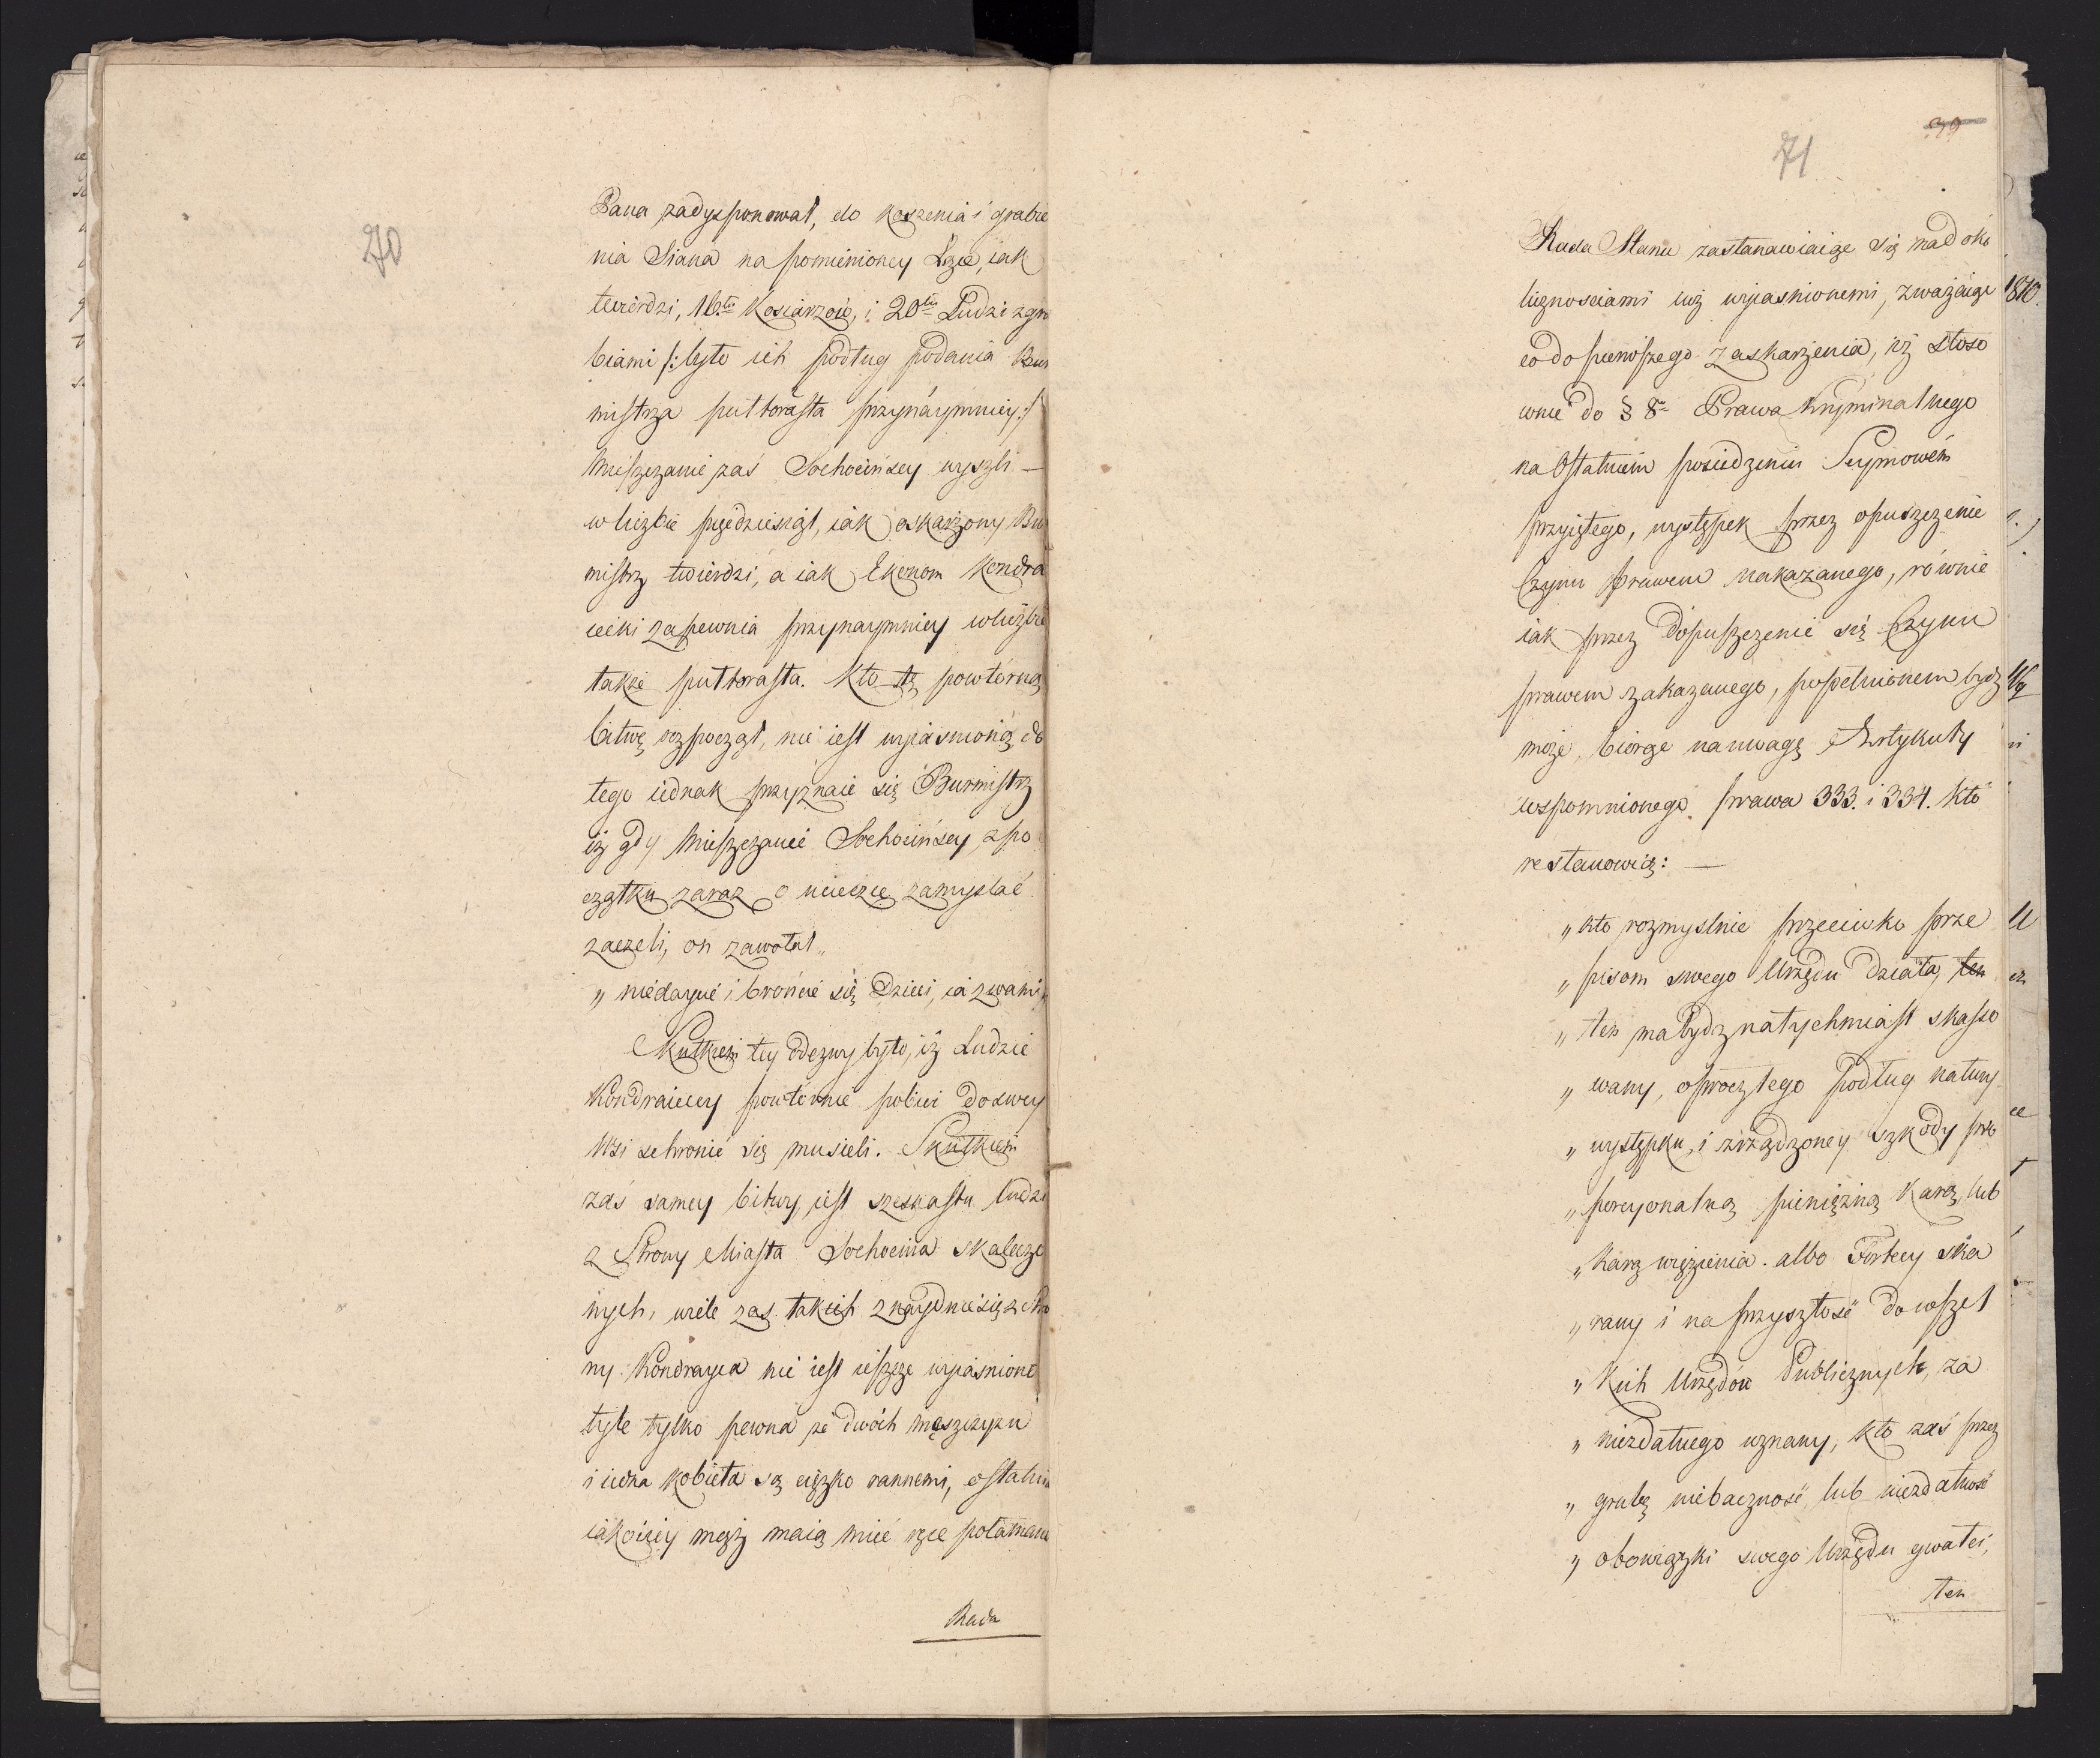 70
Pana zadysponował, do koszenia i grabie
nia Siana na pomienioney Łące, iak
twierdzi, 16.tu Kosiarzów, i 20tu Ludzi z gra
biami /: było ich podług podania Bur
mistrza puttorasta przynaymniey :/
Mieszczanie zaś Sochocińscy wyszli —
w liczbie pięćdziesiąt, iak oskarżony Bur
mistrz twierdzi, a iak Ekonom Kondra
iecki zapewnia przynaymniey w liczbie
także puttorasta. Kto tę powtórną
bitwę rozpoczął, nie iest wyiaśnioną, do
tego iednak przyznaie się Burmistrz
iż gdy Mieszczanie Sochocińscy, z po
czątku zaraz o ucieczce zamyślać
zaczeli, on zawołał„
„ niedaycie i brońcie się Dzieci, ia z wami„
Skutkiem tey odezwy było, iż Ludzie
Kondraieccy powtórnie pobici do swey
Wsi schronić się musieli. Skutkiem
zaś samey bitwy, iest szesnastu ludzi
z Strony Miasta Sochocina skalecze
nych, wiele zaś takich znayduie się z stro
ny Kondrayca nie iest ieszcze wyiaśnione
tyle tylko pewna że dwóch męszczyzn
i iedna kobieta są ciężko rannemi, ostatnia
iakoiiey mąż maią mieć ręce połamane
Rada
39
71
Rada Stanu zastanawiaiąc się nad oko
licznościami iuż wyiaśnionemi, zważaiąc
co do pierwszego zaskarżenia, iż stoso
wnie do § 8o Prawa Kryminalnego
na Ostatniém posiedzeniu Seymowém
przyiętego, występek przez opuszczenie
Czynu prawem nakazanego, równie
iak przez dopuszczenie się Czynu
prawem zakazanego, popełnionem bydź
może, biorąc na uwagę Artykuły
wspomnionego prawa 333. i 334. któ
re stanowią: —
„ kto rozmyślnie przeciwko prze
„ pisom swego Urzędu działa, ten
„ ten ma bydź natychmiast skasso
„ wany, oprócz tego podług natury
„ występku, i zrządzoney szkody pro
„ porcyonalną pieniężną Karą, lub
„ Karą więzienia . albo Fortecy ska
„ rany i na przyszłość do wszel
„ kich Urzędów Publicznych, za
„ niezdatnego uznany, kto zaś przez
„ grubą niebaczność, lub niezdatność
„ obowiązki swego Urzędu gwałci,
ten
1810.